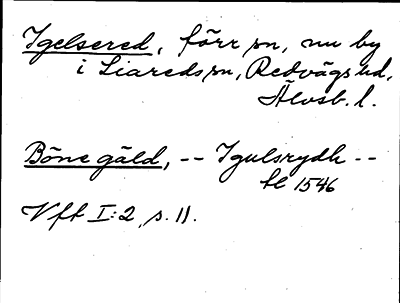 Igelsered, förr sn, nu by
i Liareds sn, Redvägs hd,
Älvsb. l.
Böne gäld, -- Igulsrydh --
tl 1546
Vft I:2, s. 11.